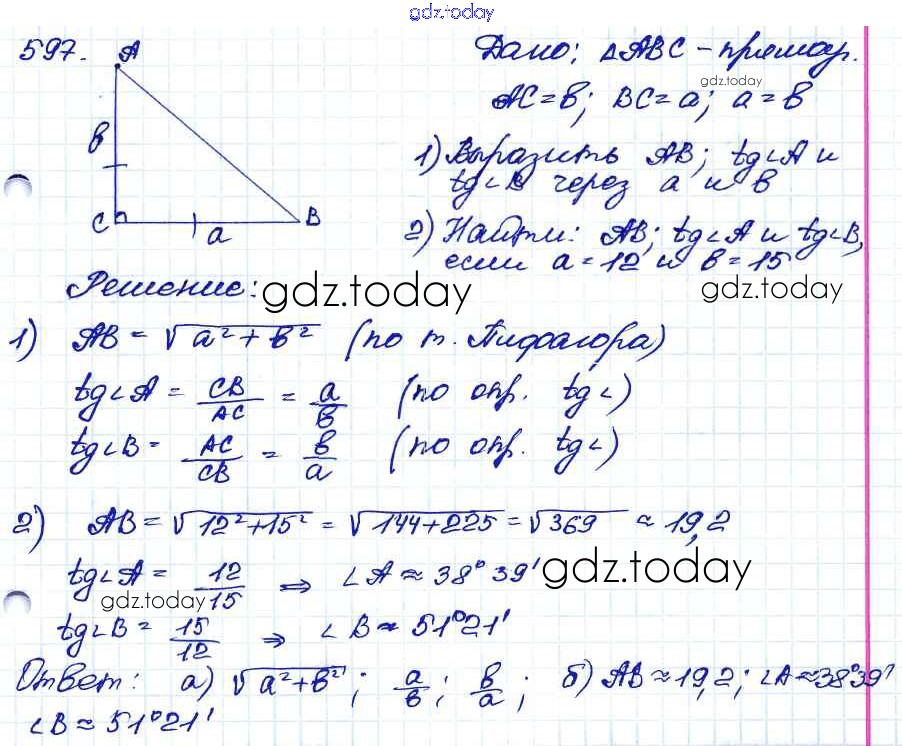 gdz.today
597.
A
в
C
a
B
Дано: △ABC – прямоуг.
gdz.today
AC = в; BC = a; a = в
1) Выразить AB; tg∠A и
tg∠B через a и в
2) Найти: AB; tg∠A и tg∠B,
если a = 12 и в = 15
Решение: gdz.today gdz.today
1) AB = √a² + в² (по т. Пифагора)
tg∠A = CB/AC = a/в (по опр. tg∠)
tg∠B = AC/CB = в/a (по опр. tg∠)
2) AB = √12² + 15² = √144 + 225 = √369 ≈ 19,2
tg∠A = 12/15 ⇒ ∠A ≈ 38°39' gdz.today
gdz.today
tg∠B = 15/12 ⇒ ∠B ≈ 51°21'
Ответ: а) √a² + в²; a/в; в/a; б) AB ≈ 19,2; ∠A ≈ 38°39'
∠B ≈ 51°21'